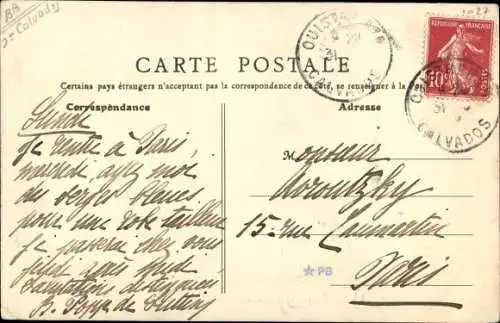 BB
Calvados
1527
OUISTREHAM
CALVADOS
RÉPUBLIQUE FRANÇAISE
POSTES
10c
CARTE POSTALE
Certains pays étrangers n'acceptant pas la correspondance de ce côté, se renseigner à la
Correspondance
Adresse
Lundi
Je rentre à Paris,
mercredi, ayez moi
des serges bleues
pour une robe tailleur
Je passerai chez vous
après midi
Salutations distinguées
B. de
Monsieur
15 rue Caumartin
Paris
*PB